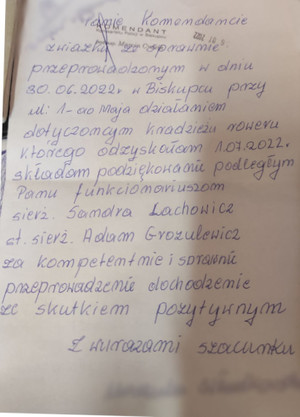 Panie Komendancie
KOMENDANT
związku ze sprawnie
przeprowadzonym w dniu
30.06.2022r w Biskupcu przy
ul: 1-ao Maja działaniem
dotyczącym kradzieżu roweru
którego odzyskałam 1.07.2022r.
składam podziękowanie podległym
Panu funkcjonariuszom
sierż. Sandra Lachowicz
st. sierż. Adam Grozulewicz
za kompetentnie i sprawnie
przeprowadzenie dochodzenie
ze skutkiem pozytywnym
Z wyrazami szacunku